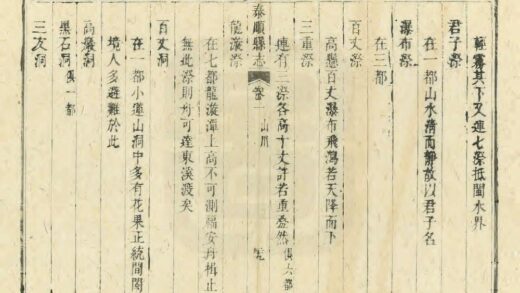 輕霧其下又連七漈抵閩水界
君子漈
在一都山水清而靜故以君子名
瀑布漈
在三都
百丈漈
高懸百丈瀑布飛瀉若天降而下
三重漈
連有三漈各高十丈許若重疊然 俱六都
泰順縣志 卷一 山川
龍漈
在七都龍潭上高不可測福安舟楫止
無此漈則舟可達東溪渡矣
百丈洞
在一都小蓬山洞中多有花果正統間閩
境人多避難於此
高巖洞
黑石洞 俱一都
三洞